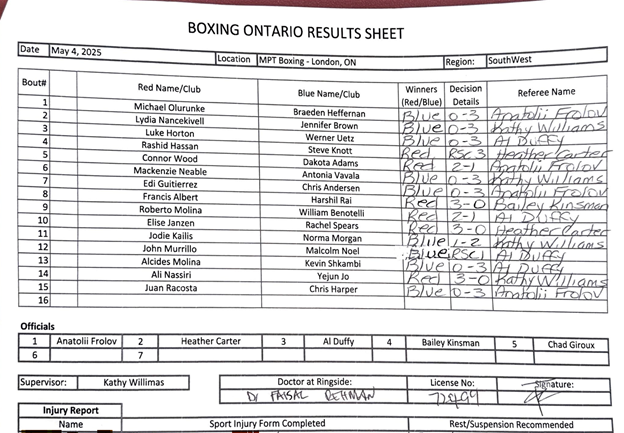 BOXING ONTARIO RESULTS SHEET
Date May 4, 2025 Location MPT Boxing - London, ON Region: SouthWest
Bout# Red Name/Club Blue Name/Club Winners (Red/Blue) Decision Details Referee Name
1 Michael Olurunke Braeden Heffernan Blue 0-3 Anatolii Frolov
2 Lydia Nancekivell Jennifer Brown Blue 0-3 Kathy Williams
3 Luke Horton Werner Uetz Blue 0-3 Al Duffy
4 Rashid Hassan Steve Knott Red RSC3 Heather Carter
5 Connor Wood Dakota Adams Red 2-1 Anatolii Frolov
6 Mackenzie Neable Antonia Vavala Blue 0-3 Kathy Williams
7 Edi Guitierrez Chris Andersen Blue 0-3 Anatolii Frolov
8 Francis Albert Harshil Rai Red 3-0 Bailey Kinsman
9 Roberto Molina William Benotelli Red 2-1 Al Duffy
10 Elise Janzen Rachel Spears Red 3-0 Heather Carter
11 Jodie Kailis Norma Morgan Blue 1-2 Kathy Williams
12 John Murrillo Malcolm Noel Blue RSC1 Al Duffy
13 Alcides Molina Kevin Shkambi Blue 0-3 Al Duffy
14 Ali Nassiri Yejun Jo Red 3-0 Kathy Williams
15 Juan Racosta Chris Harper Blue 0-3 Anatolii Frolov
16
Officials
1 Anatolii Frolov 2 Heather Carter 3 Al Duffy 4 Bailey Kinsman 5 Chad Giroux
6 7
Supervisor: Kathy Willimas Doctor at Ringside: Dr FAISAL REHMAN License No: 72499 Signature:
Injury Report
Name Sport Injury Form Completed Rest/Suspension Recommended